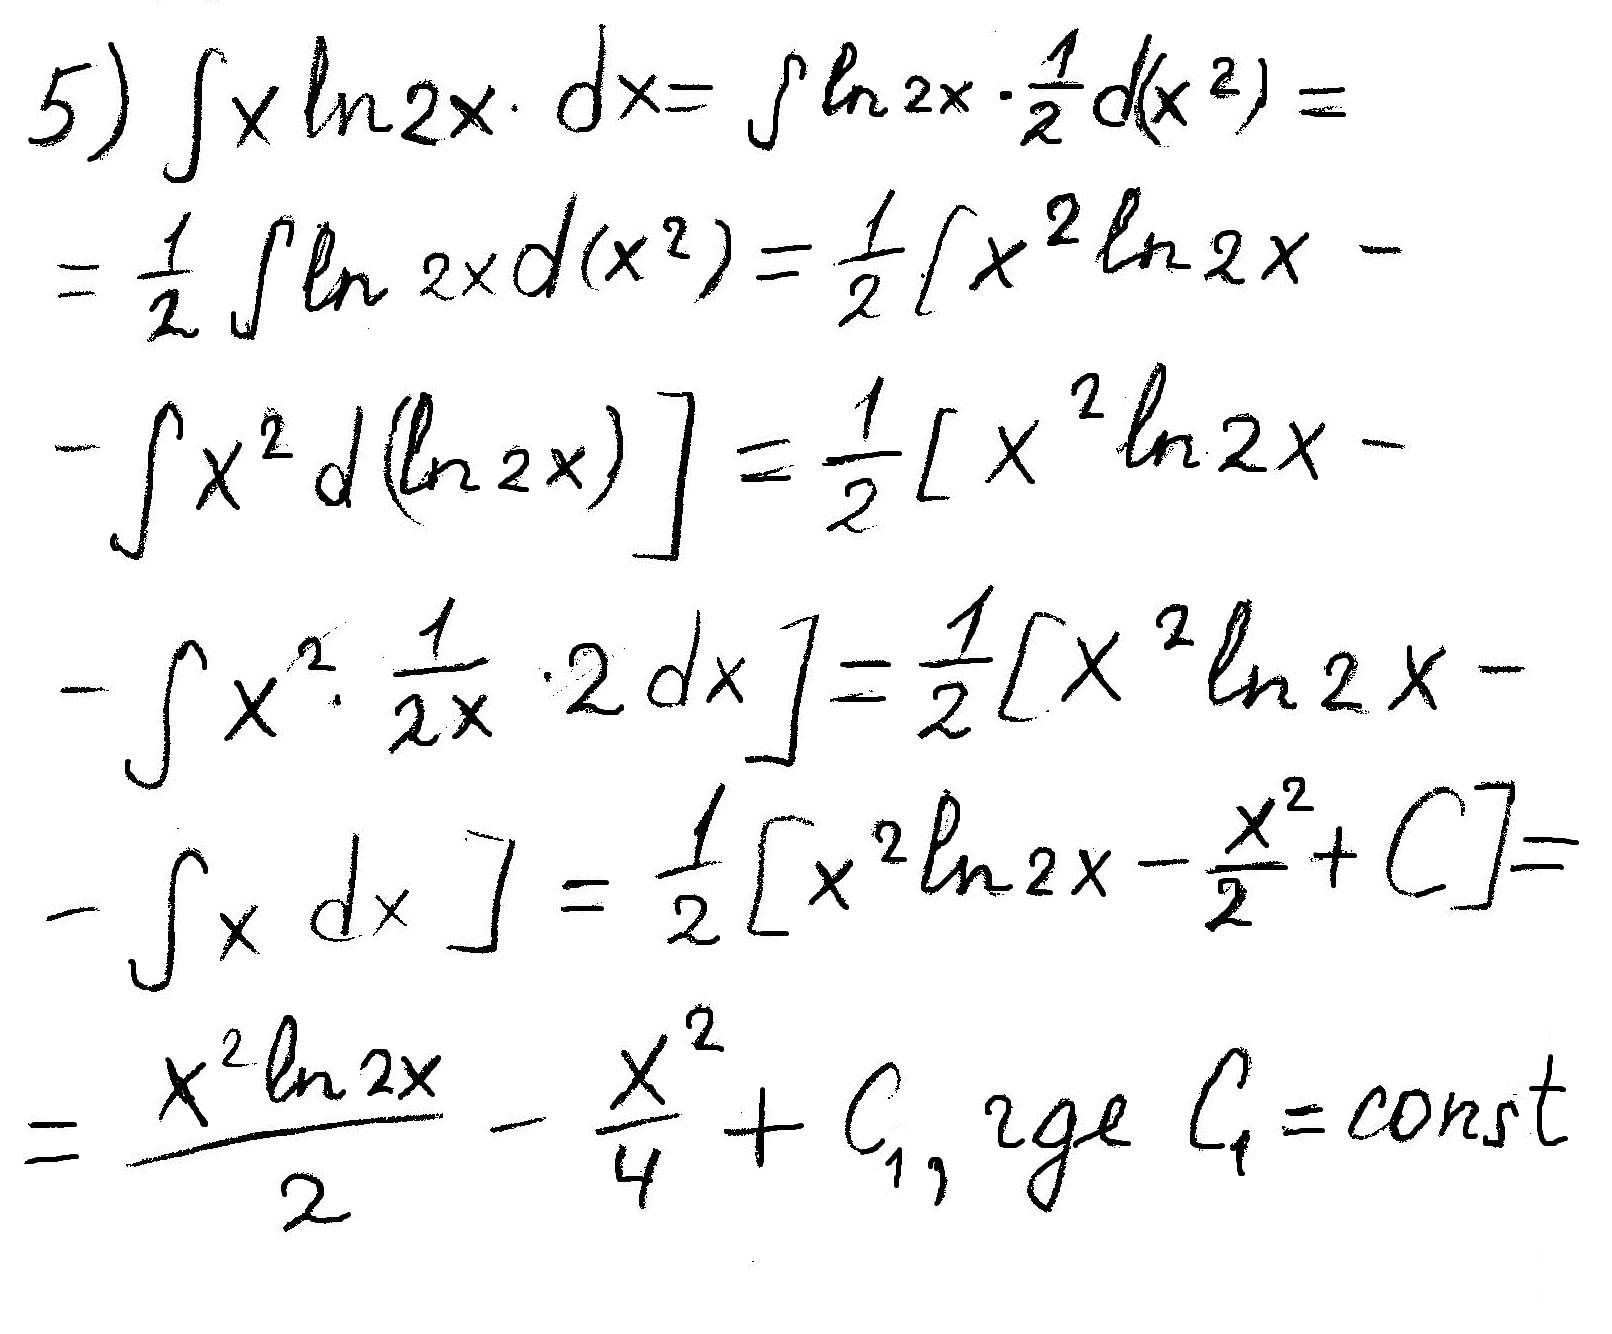 5) ∫ x ln 2x · dx = ∫ ln 2x · 1/2 d(x²) =
= 1/2 ∫ ln 2x d(x²) = 1/2 [x² ln 2x -
- ∫ x² d(ln 2x)] = 1/2 [x² ln 2x -
- ∫ x² · 1/2x · 2 dx] = 1/2 [x² ln 2x -
- ∫ x dx] = 1/2 [x² ln 2x - x²/2 + C] =
= x² ln 2x/2 - x²/4 + C₁, где C₁ = const